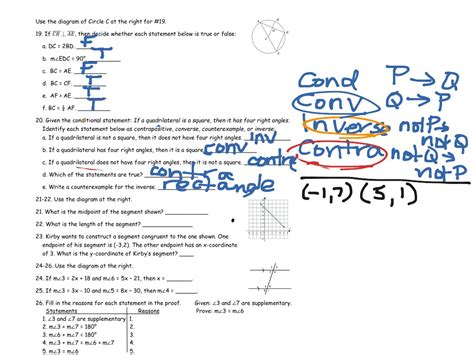 Use the diagram of Circle C at the right for #19.
19. If CB ⊥ AE, then decide whether each statement below is true or false:
a. DC = 2BD. F
b. m∠EDC = 90° T
c. BC = AE F
d. CF = EC T
e. AF = AE F
f. BC = ½ AF. T
20. Given the conditional statement: If a quadrilateral is a square, then it has four right angles.
Identify each statement below as contrapositive, converse, counterexample, or inverse:
a. If a quadrilateral is not a square, then it does not have four right angles. Inv
b. If a quadrilateral has four right angles, then it is a square. conv
c. If a quadrilateral does not have four right angles, then it is not a square. contra
d. Which of the statements are true? contra
e. Write a counterexample for the inverse. rectangle
21-22. Use the diagram at the right.
21. What is the midpoint of the segment shown?
22. What is the length of the segment?
23. Kirby wants to construct a segment congruent to the one shown. One
endpoint of his segment is (-3,2). The other endpoint has an x-coordinate
of 3. What is the y-coordinate of Kirby's segment?
24-26. Use the diagram at right.
24. If m∠3 = 2x + 18 and m∠6 = 5x - 21, then x =
25. If m∠3 = 3x - 5 and m∠5 = 8x - 30, then m∠4 =
26. Fill in the reasons for each statement in the proof. Given: ∠3 and ∠7 are supplementary.
Statements Reasons Prove: m∠3 = m∠6
1. ∠3 and ∠7 are supplementary 1.
2. m∠3 + m∠7 = 180° 2.
3. m∠6 + m∠7 = 180° 3.
4. m∠3 + m∠7 = m∠6 + m∠7 4.
5. m∠3 = m∠6 5.
Cond P → Q
Conv Q → P
Inverse not P → not Q
Contra not Q → not P
(-1,7) (5,1)